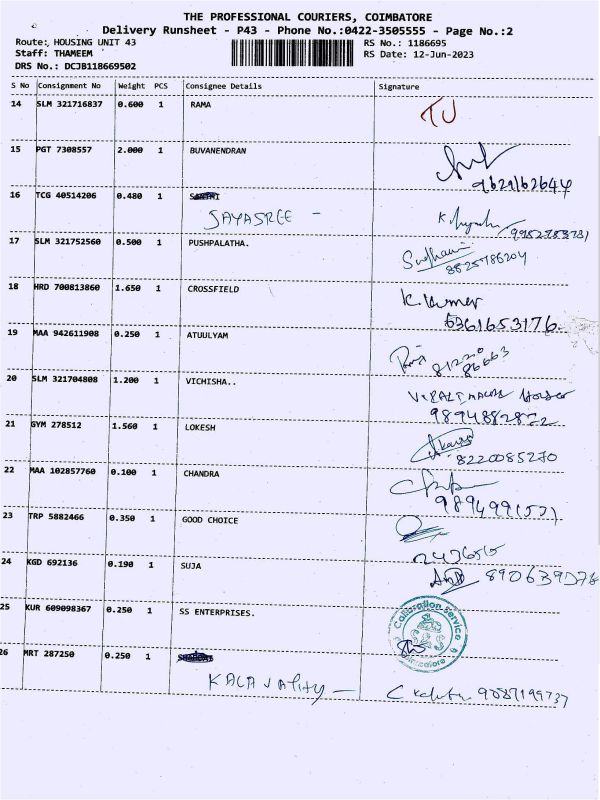 THE PROFESSIONAL COURIERS, COIMBATORE
Delivery Runsheet - P43 - Phone No.:0422-3505555 - Page No.:2
Route:, HOUSING UNIT 43 RS No.: 1186695
Staff: THAMEEM RS Date: 12-Jun-2023
DRS No.: DCJB118669502
S No Consignment No Weight PCS Consignee Details Signature
14 SLM 321716837 0.600 1 RAMA TU
15 PGT 7308557 2.000 1 BUVANENDRAN
9621162644
16 TCG 40514206 0.480 1
JAYASREE -
17 SLM 321752560 0.500 1 PUSHPALATHA.
8825786204
18 HRD 700813860 1.650 1 CROSSFIELD K. Kumar
6361653176
19 MAA 942611908 0.250 1 ATUULYAM
20 SLM 321704808 1.200 1 VICHISHA..
9894882872
21 GYM 278512 1.560 1 LOKESH
8220085270
22 MAA 102857760 0.100 1 CHANDRA
23 TRP 5882466 0.350 1 GOOD CHOICE
24 KGD 692136 0.190 1 SUJA
25 KUR 609098367 0.250 1 SS ENTERPRISES.
Calibration Service
C&S
Coimbatore
26 MRT 287250 0.250 1